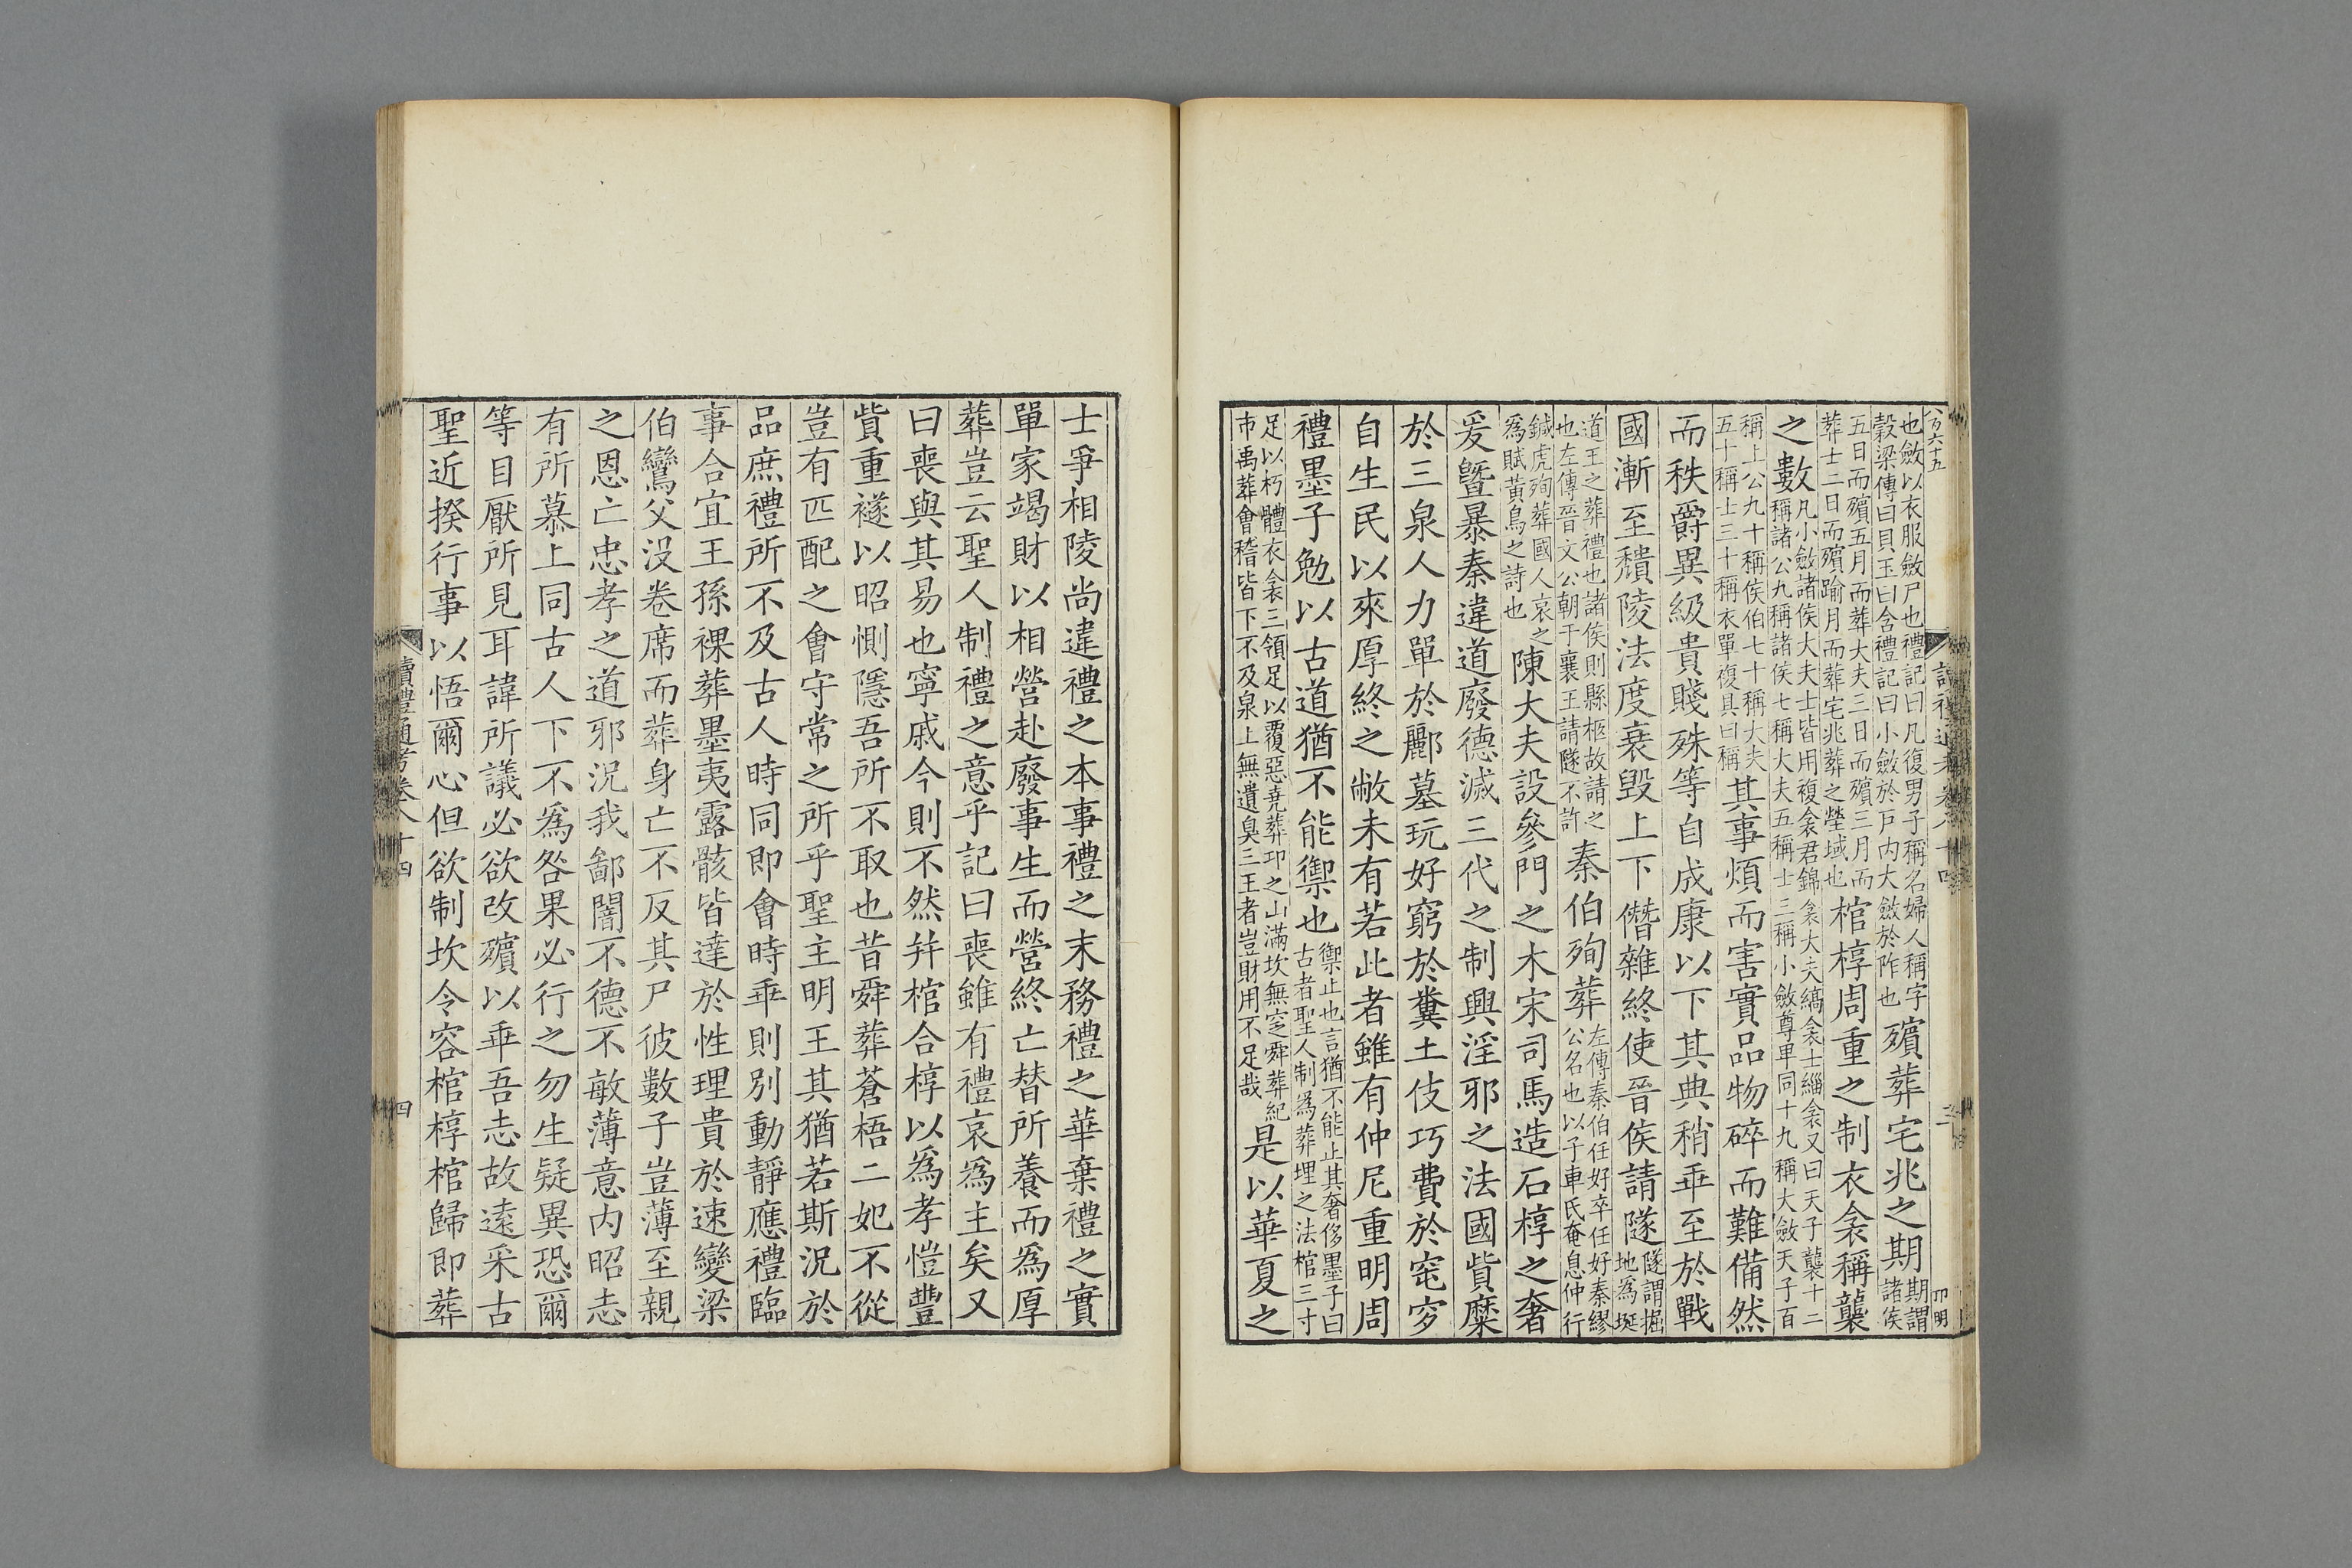 八百六十五
也斂以衣服斂尸也禮記曰凡復男子稱名婦人稱字
穀梁傳曰貝玉曰含禮記曰小斂於戸内大斂於阼也
殯葬宅兆之期
期謂
諸侯
五日而殯五月而葬大夫三日而殯三月而
葬士二日而殯踰月而葬宅兆葬之塋域也
棺椁周重之制衣衾稱襲
之數
凡小斂諸侯大夫士皆用複衾君錦衾大夫縞衾士緇衾又曰天子襲十二
稱諸公九稱諸侯七稱大夫五稱士三稱小斂尊卑同十九稱大斂天子百
稱上公九十稱侯伯七十稱大夫
五十稱士三十稱衣單複具曰稱
其事煩而害實品物碎而難備然
而秩爵異級貴賤殊等自成康以下其典稍乖至於戰
國漸至穨陵法度衰毁上下僭雜終使晉侯請隧
隧謂掘
地爲埏
道王之葬禮也諸侯則縣柩故請之
也左傳晉文公朝于襄王請隧不許
秦伯殉葬
左傳秦伯任好卒任好秦繆
公名也以子車氏奄息仲行
鍼虎殉葬國人哀之
爲賦黃鳥之詩也
陳大夫設參門之木宋司馬造石椁之奢
爰曁暴秦違道廢德滅三代之制興淫邪之法國貲糜
於三泉人力單於酈墓玩好窮於糞土伎巧費於窀穸
自生民以來厚終之敝未有若此者雖有仲尼重明周
禮墨子勉以古道猶不能禦也
禦止也言猶不能止其奢侈墨子曰
古者聖人制爲葬埋之法棺三寸
足以朽體衣衾三領足以覆惡堯葬邛之山滿坎無窆舜葬紀
市禹葬會稽皆下不及泉上無遺臭三王者豈財用不足哉
是以華夏之
讀禮通考卷八十四
士爭相陵尚違禮之本事禮之末務禮之華棄禮之實
單家竭財以相營赴廢事生而營終亡替所養而爲厚
葬豈云聖人制禮之意乎記曰喪雖有禮哀爲主矣又
曰喪與其易也寧戚今則不然幷棺合椁以爲孝愷豐
貲重襚以昭惻隱吾所不取也昔舜葬蒼梧二妃不從
豈有匹配之會守常之所乎聖主明王其猶若斯況於
品庶禮所不及古人時同即會時乖則别動靜應禮臨
事合宜王孫裸葬墨夷露骸皆達於性理貴於速變梁
伯鸞父没卷席而葬身亡不反其尸彼數子豈薄至親
之恩亡忠孝之道邪況我鄙闇不德不敏薄意内昭志
有所慕上同古人下不爲咎果必行之勿生疑異恐爾
等目厭所見耳諱所議必欲改殯以乖吾志故遠采古
聖近揆行事以悟爾心但欲制坎令容棺椁棺歸即葬
讀禮通考卷八十四
四